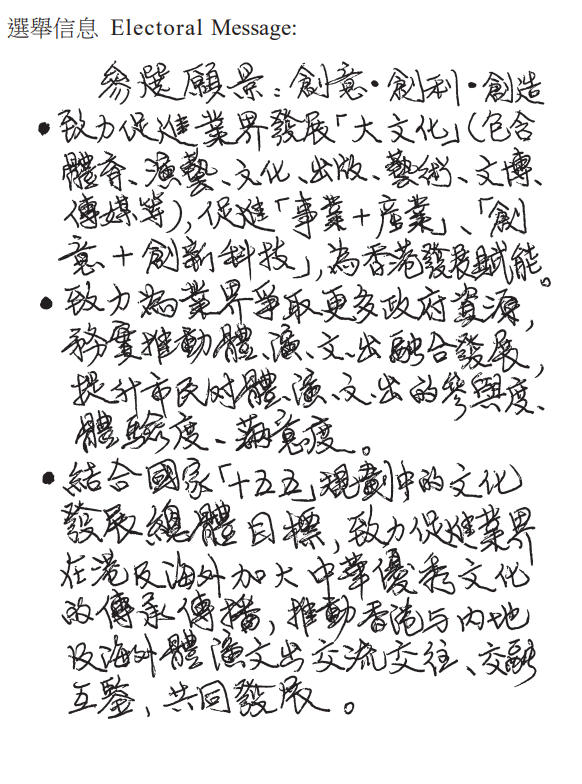 選舉信息 Electoral Message:
參選願景：創意·創利·創造
• 致力促進業界發展「大文化」(包含
體育、演藝、文化、出版、藝術、文博、
傳媒等)，促進「事業＋產業」、「創
意＋創新科技」，為香港發展賦能。
• 致力為業界爭取更多政府資源，
務實推動體、演、文、出融合發展，
提升市民對體、演、文、出的參與度、
體驗度、滿意度。
• 結合國家「十五五」規劃中的文化
發展總體目標，致力促進業界
在港及海外加大中華優秀文化
的傳承傳播，推動香港与內地
及海外體演文出交流交往、交融
互鑒，共同發展。